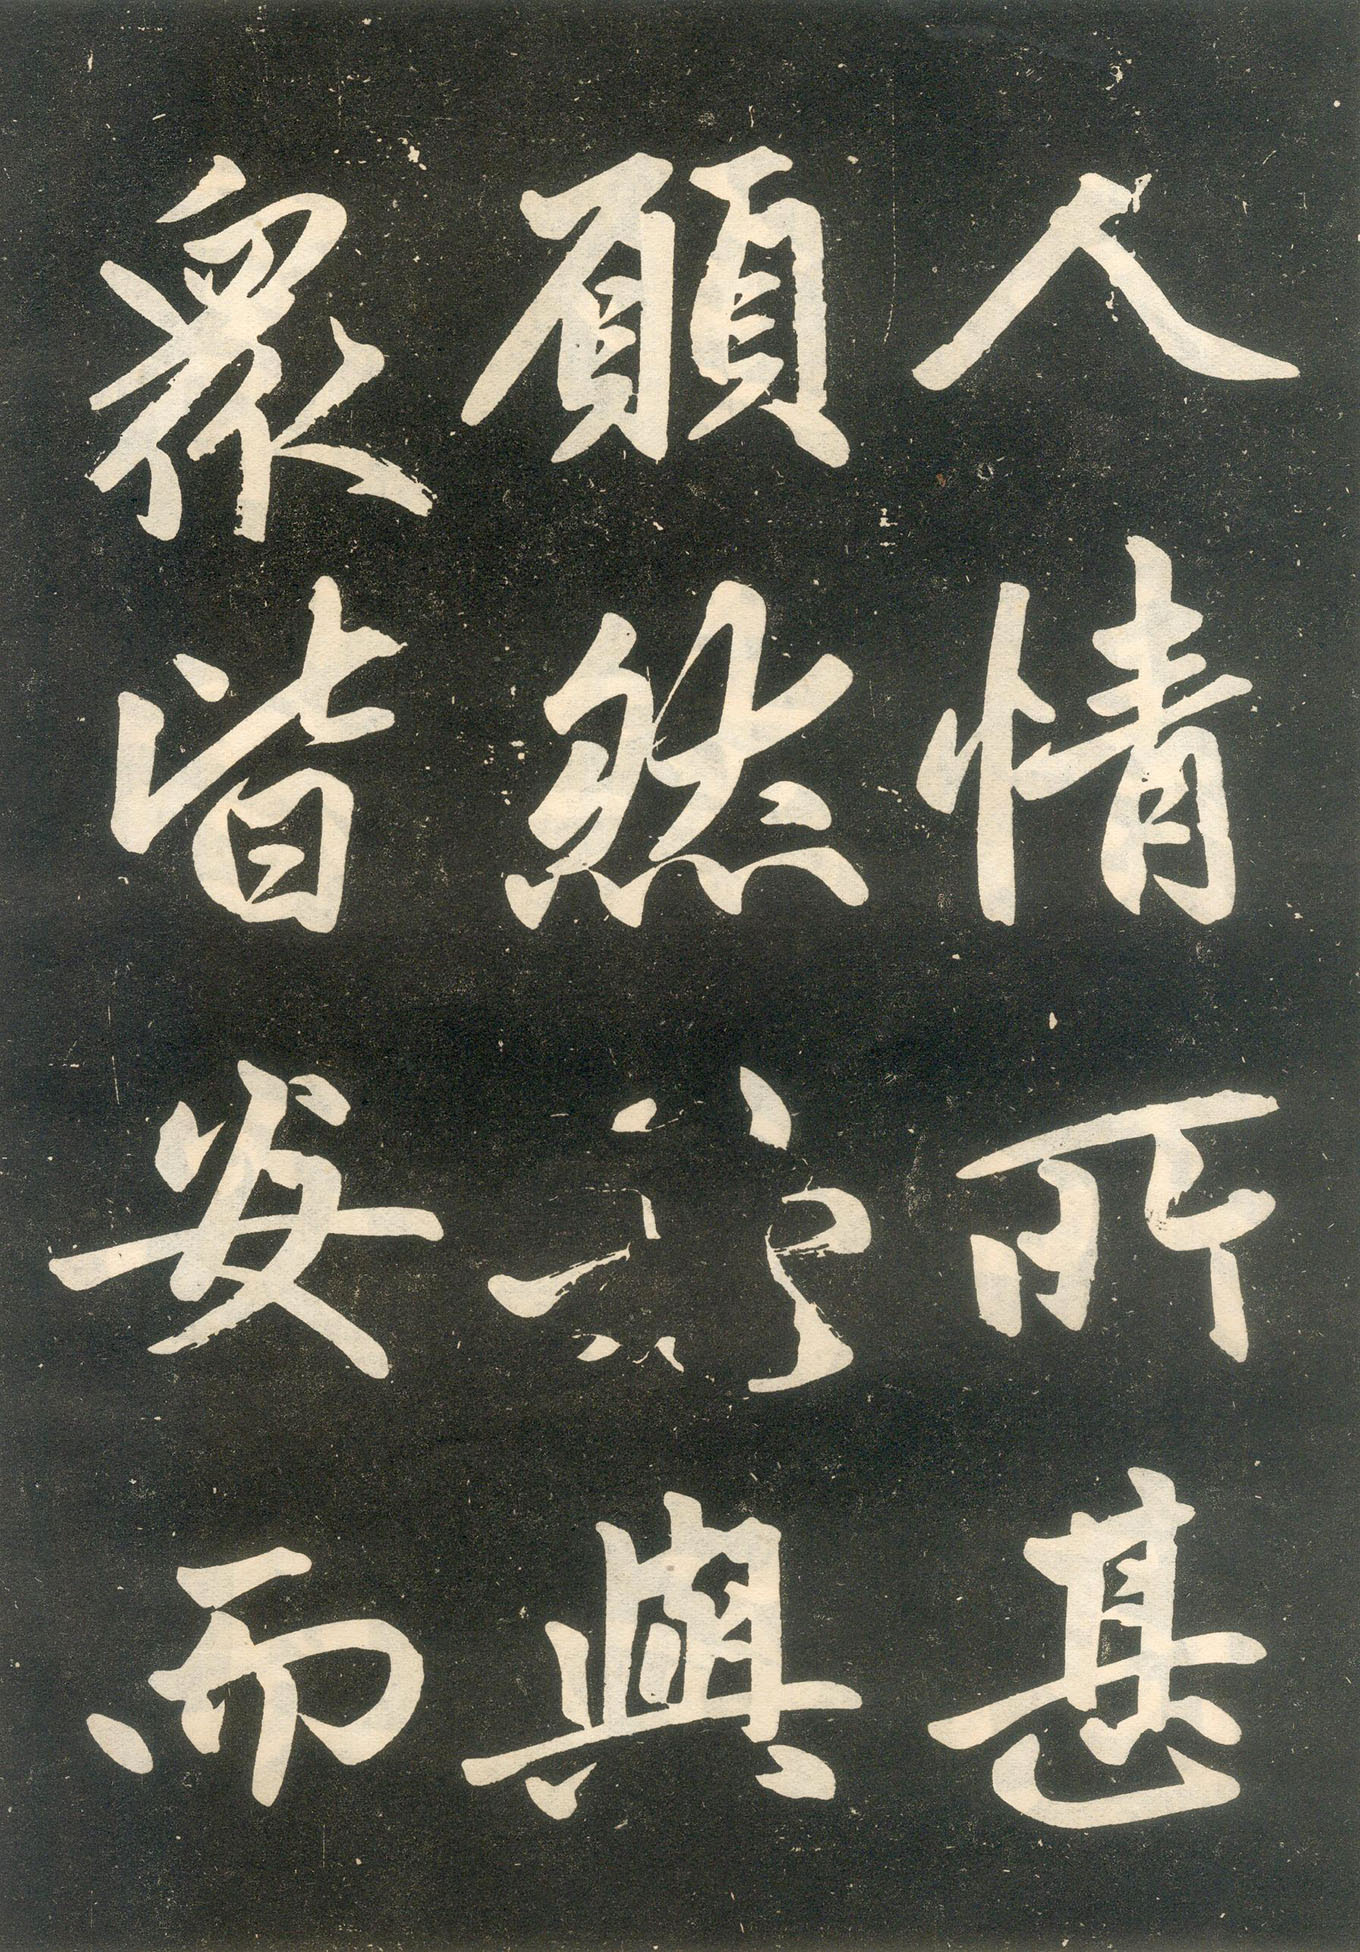 人情所甚
願然與
衆皆安而